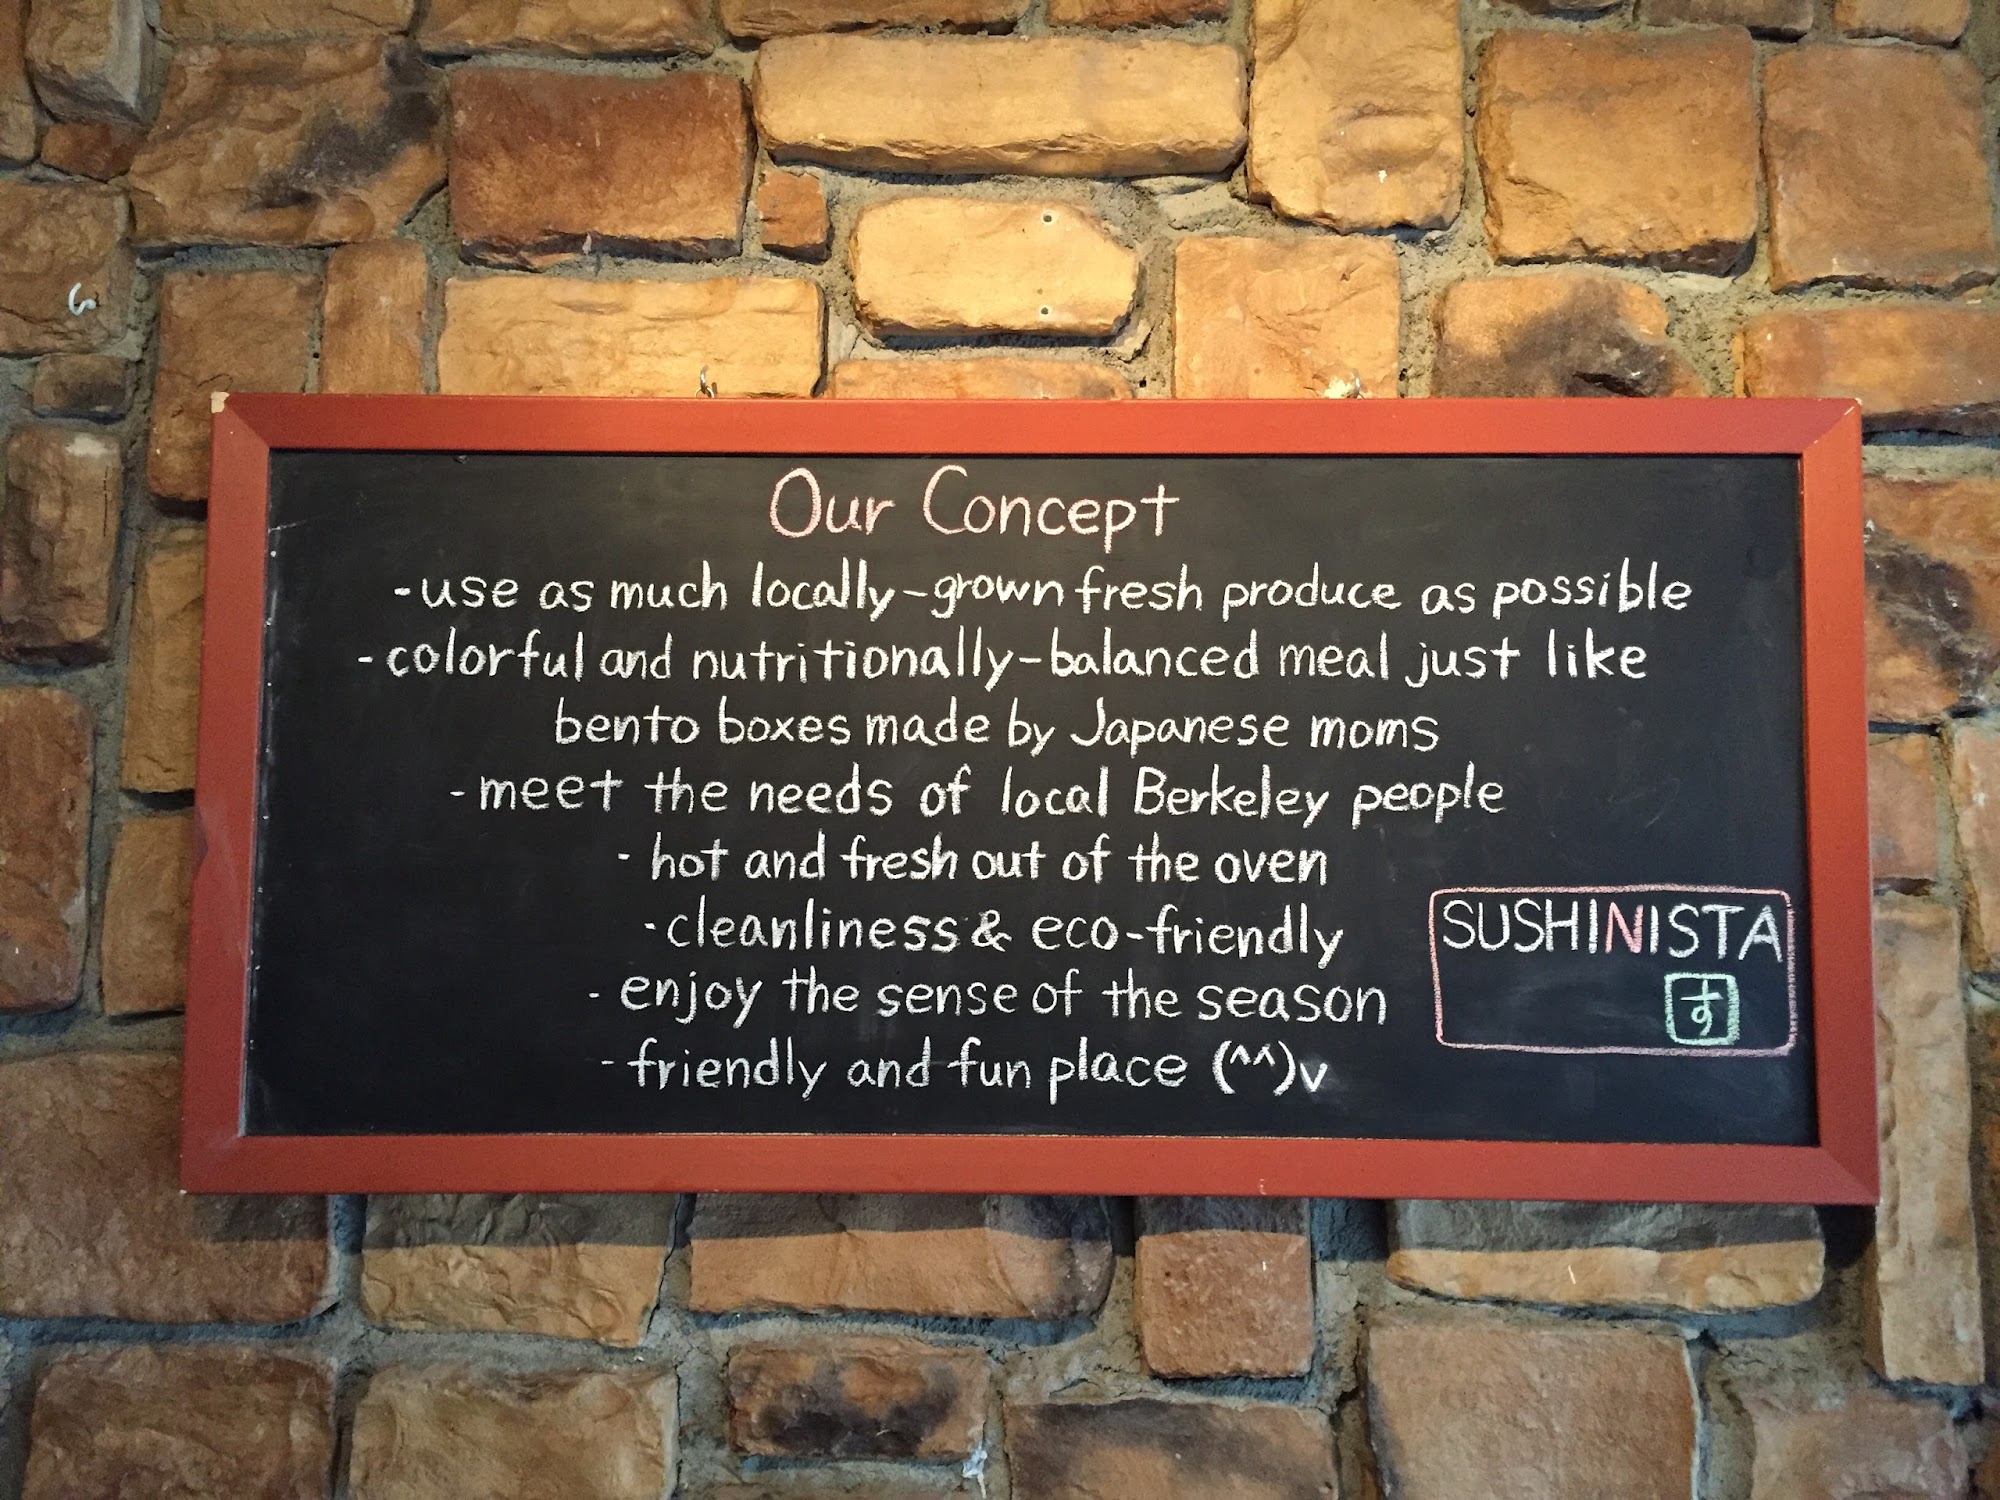 Our Concept
-use as much locally-grown fresh produce as possible
-colorful and nutritionally-balanced meal just like
bento boxes made by Japanese moms
-meet the needs of local Berkeley people
-hot and fresh out of the oven
-cleanliness & eco-friendly
-enjoy the sense of the season
-friendly and fun place (^^)v
SUSHINISTA
す